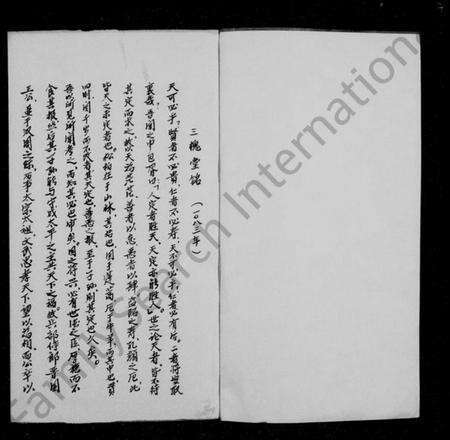 三槐堂銘 (一〇八三年)
天可必乎,賢者不必貴,仁者不必壽,天不可必乎,仁者必有后。二者將安取
衷哉,吾聞之申包胥曰,人定者勝天,天定亦能勝人。世之论天者,皆不待
其定而求之,故以天為茫茫,善者以怠,惡者以肆,盗跖之壽,孔顏之厄,此
皆天之未定者也。松柏生于山林,其始也,困于蓬蒿,厄于牛羊,其中也,貫
四時,閱千歲而不改者,其天定也。善惡之報,至于子孫,則其定也久矣。
吾以所見所聞考之,而知其必也审矣。國之將兴,必有世德之臣,厚施而不
食其報,然后其子孫能与守成太平之主共天下之福。故兵部侍郎晉國
王公,显于汉周之际,历事太祖太宗,文武忠孝,天下望以為相,而公卒以
FamilySearch International